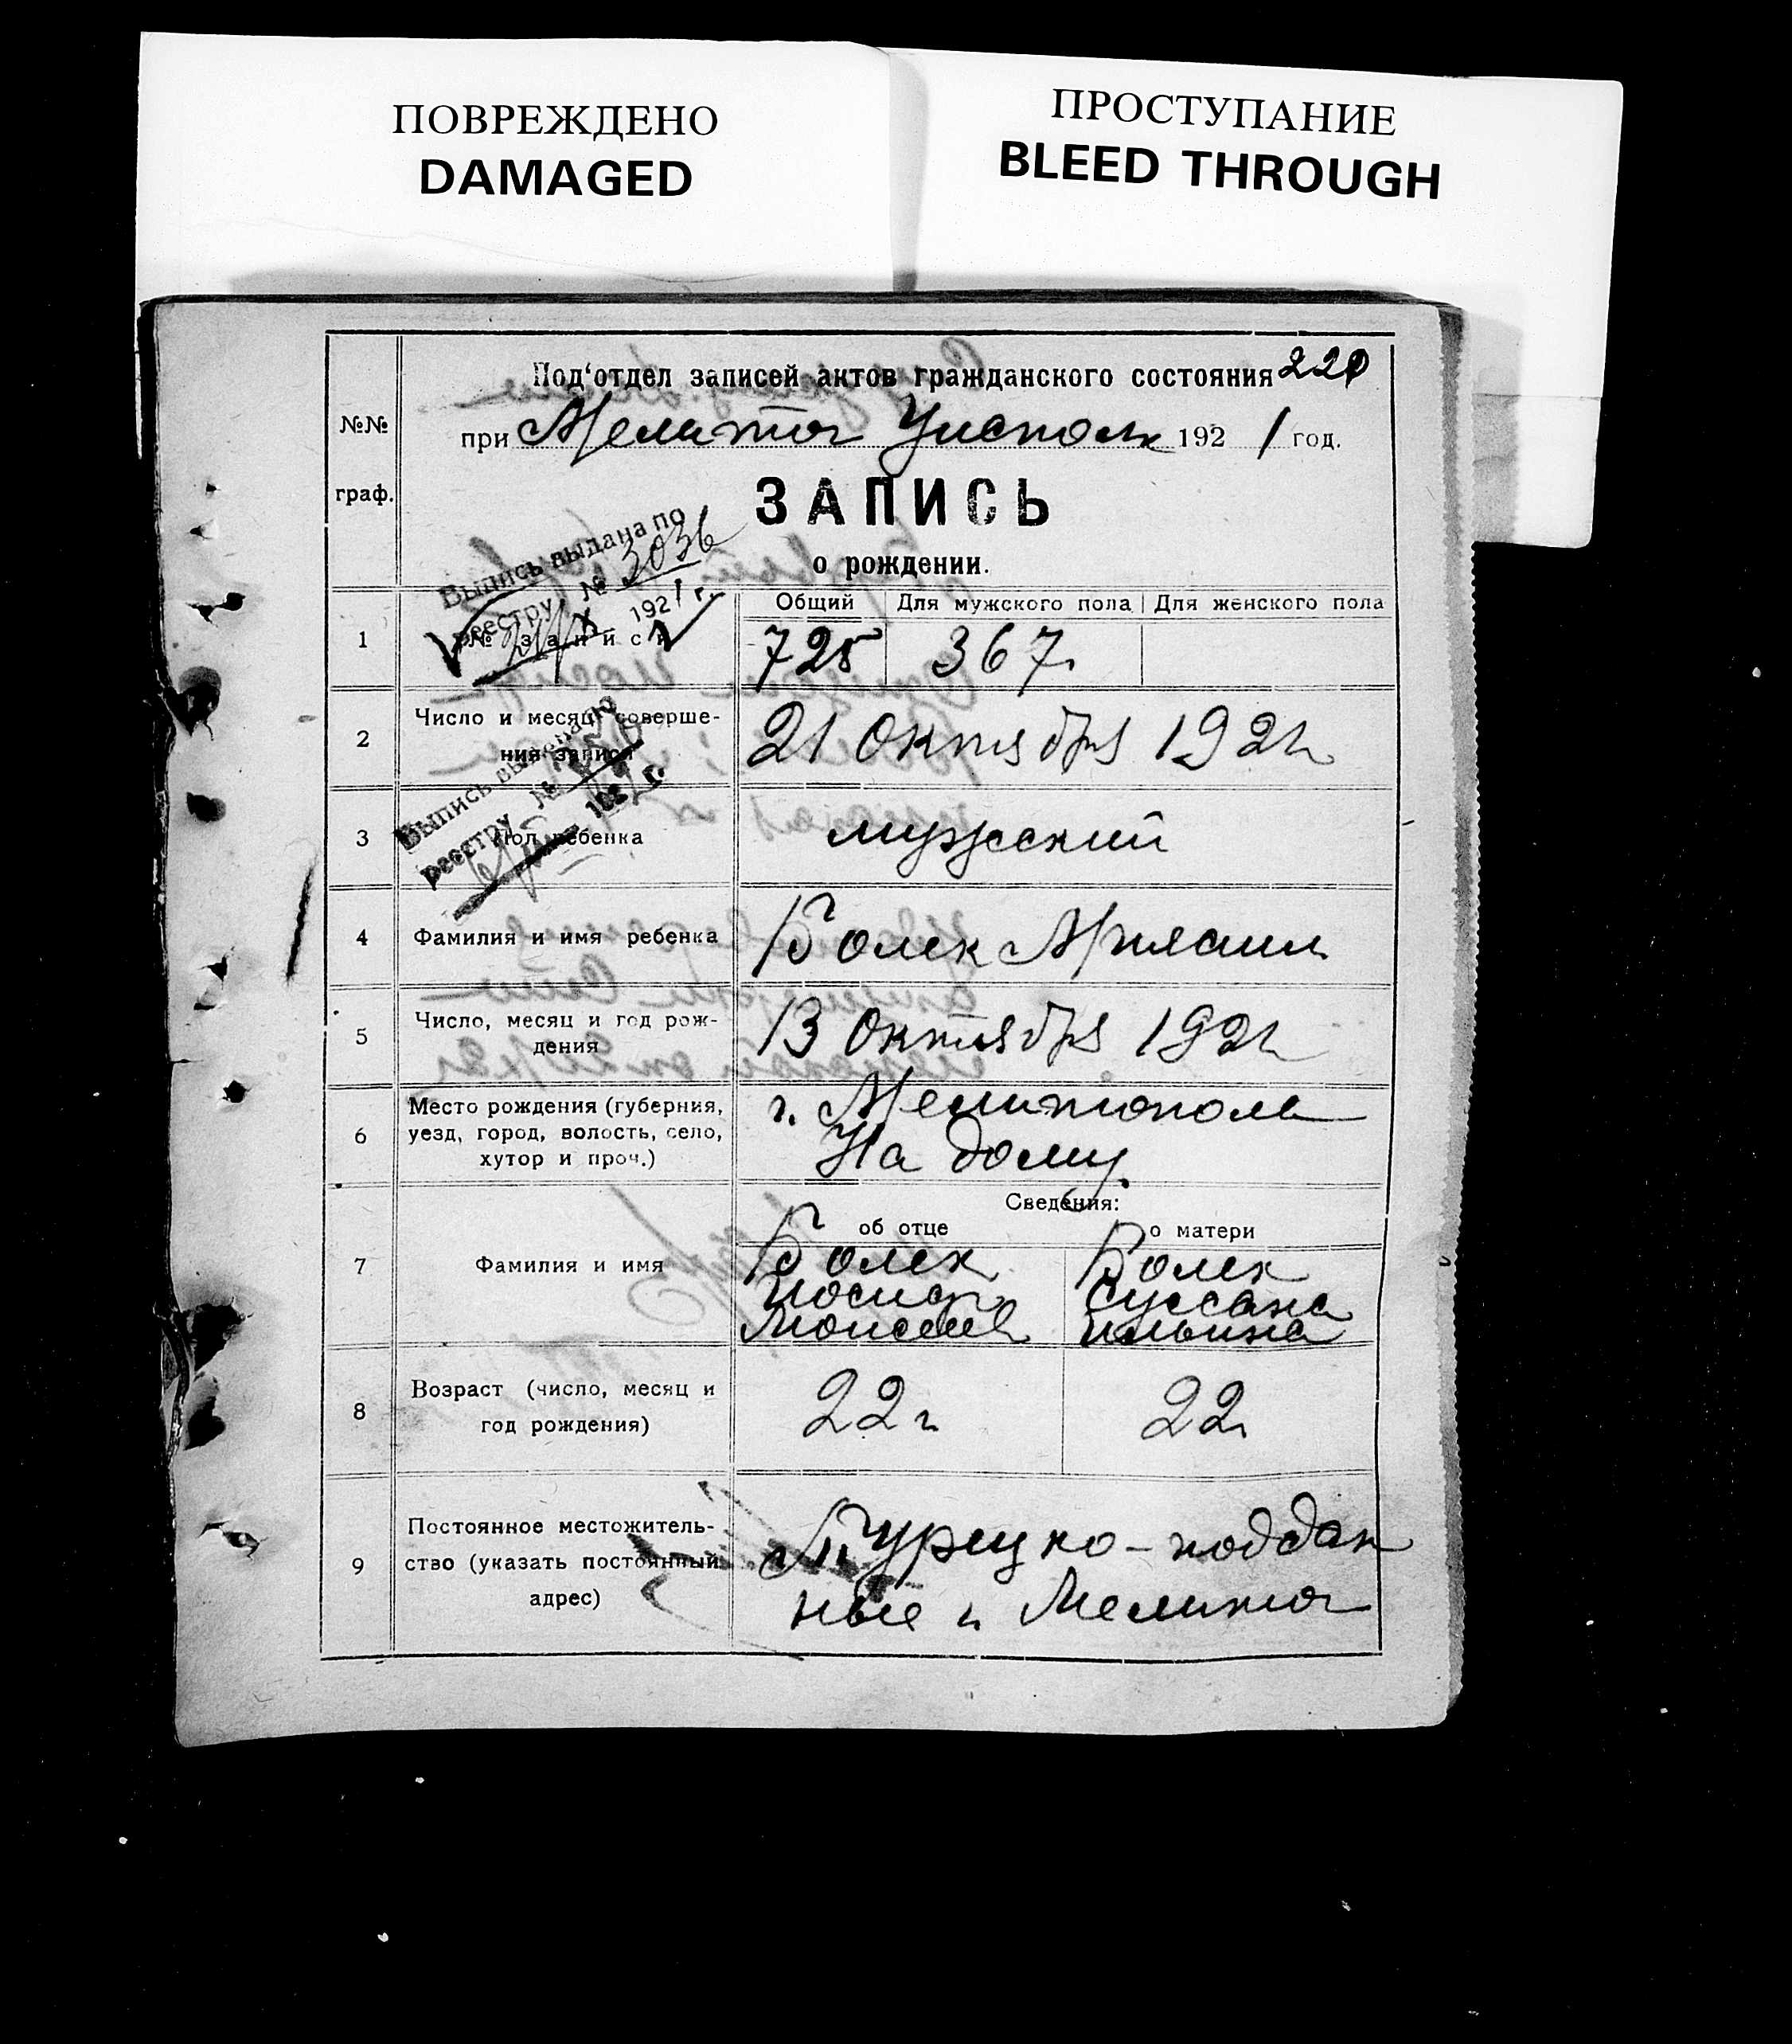 ПОВРЕЖДЕНО
DAMAGED
ПРОСТУПАНИЕ
BLEED THROUGH
№№
граф.
Под‘отдел записей актов гражданского состояния 220
при Мелитоп Уисполк 1921 год.
ЗАПИСЬ
о рождении.
Выпись выдана по
реестру № 3036
1921 г.
Общий Для мужского пола Для женского пола
1 № записи 725 367.
2 Число и месяц соверше-
ния записи 21 Октября 1921 г
Выпись выдана по
реестру №
192 г.
3 Пол ребенка мужский
4 Фамилия и имя ребенка Болек Михаил
5 Число, месяц и год рож-
дения 13 Октября 1921 г
6 Место рождения (губерния,
уезд, город, волость, село,
хутор и проч.)
г. Мелитополь
На дому
Сведения:
об отце о матери
7 Фамилия и имя
Болек Болек
Иосиф Суссана
Моисеев Ильина
8 Возраст (число, месяц и
год рождения) 22 г 22 г
9 Постоянное местожитель-
ство (указать постоянный
адрес)
Турецко-поддан
ные г. Мелитоп